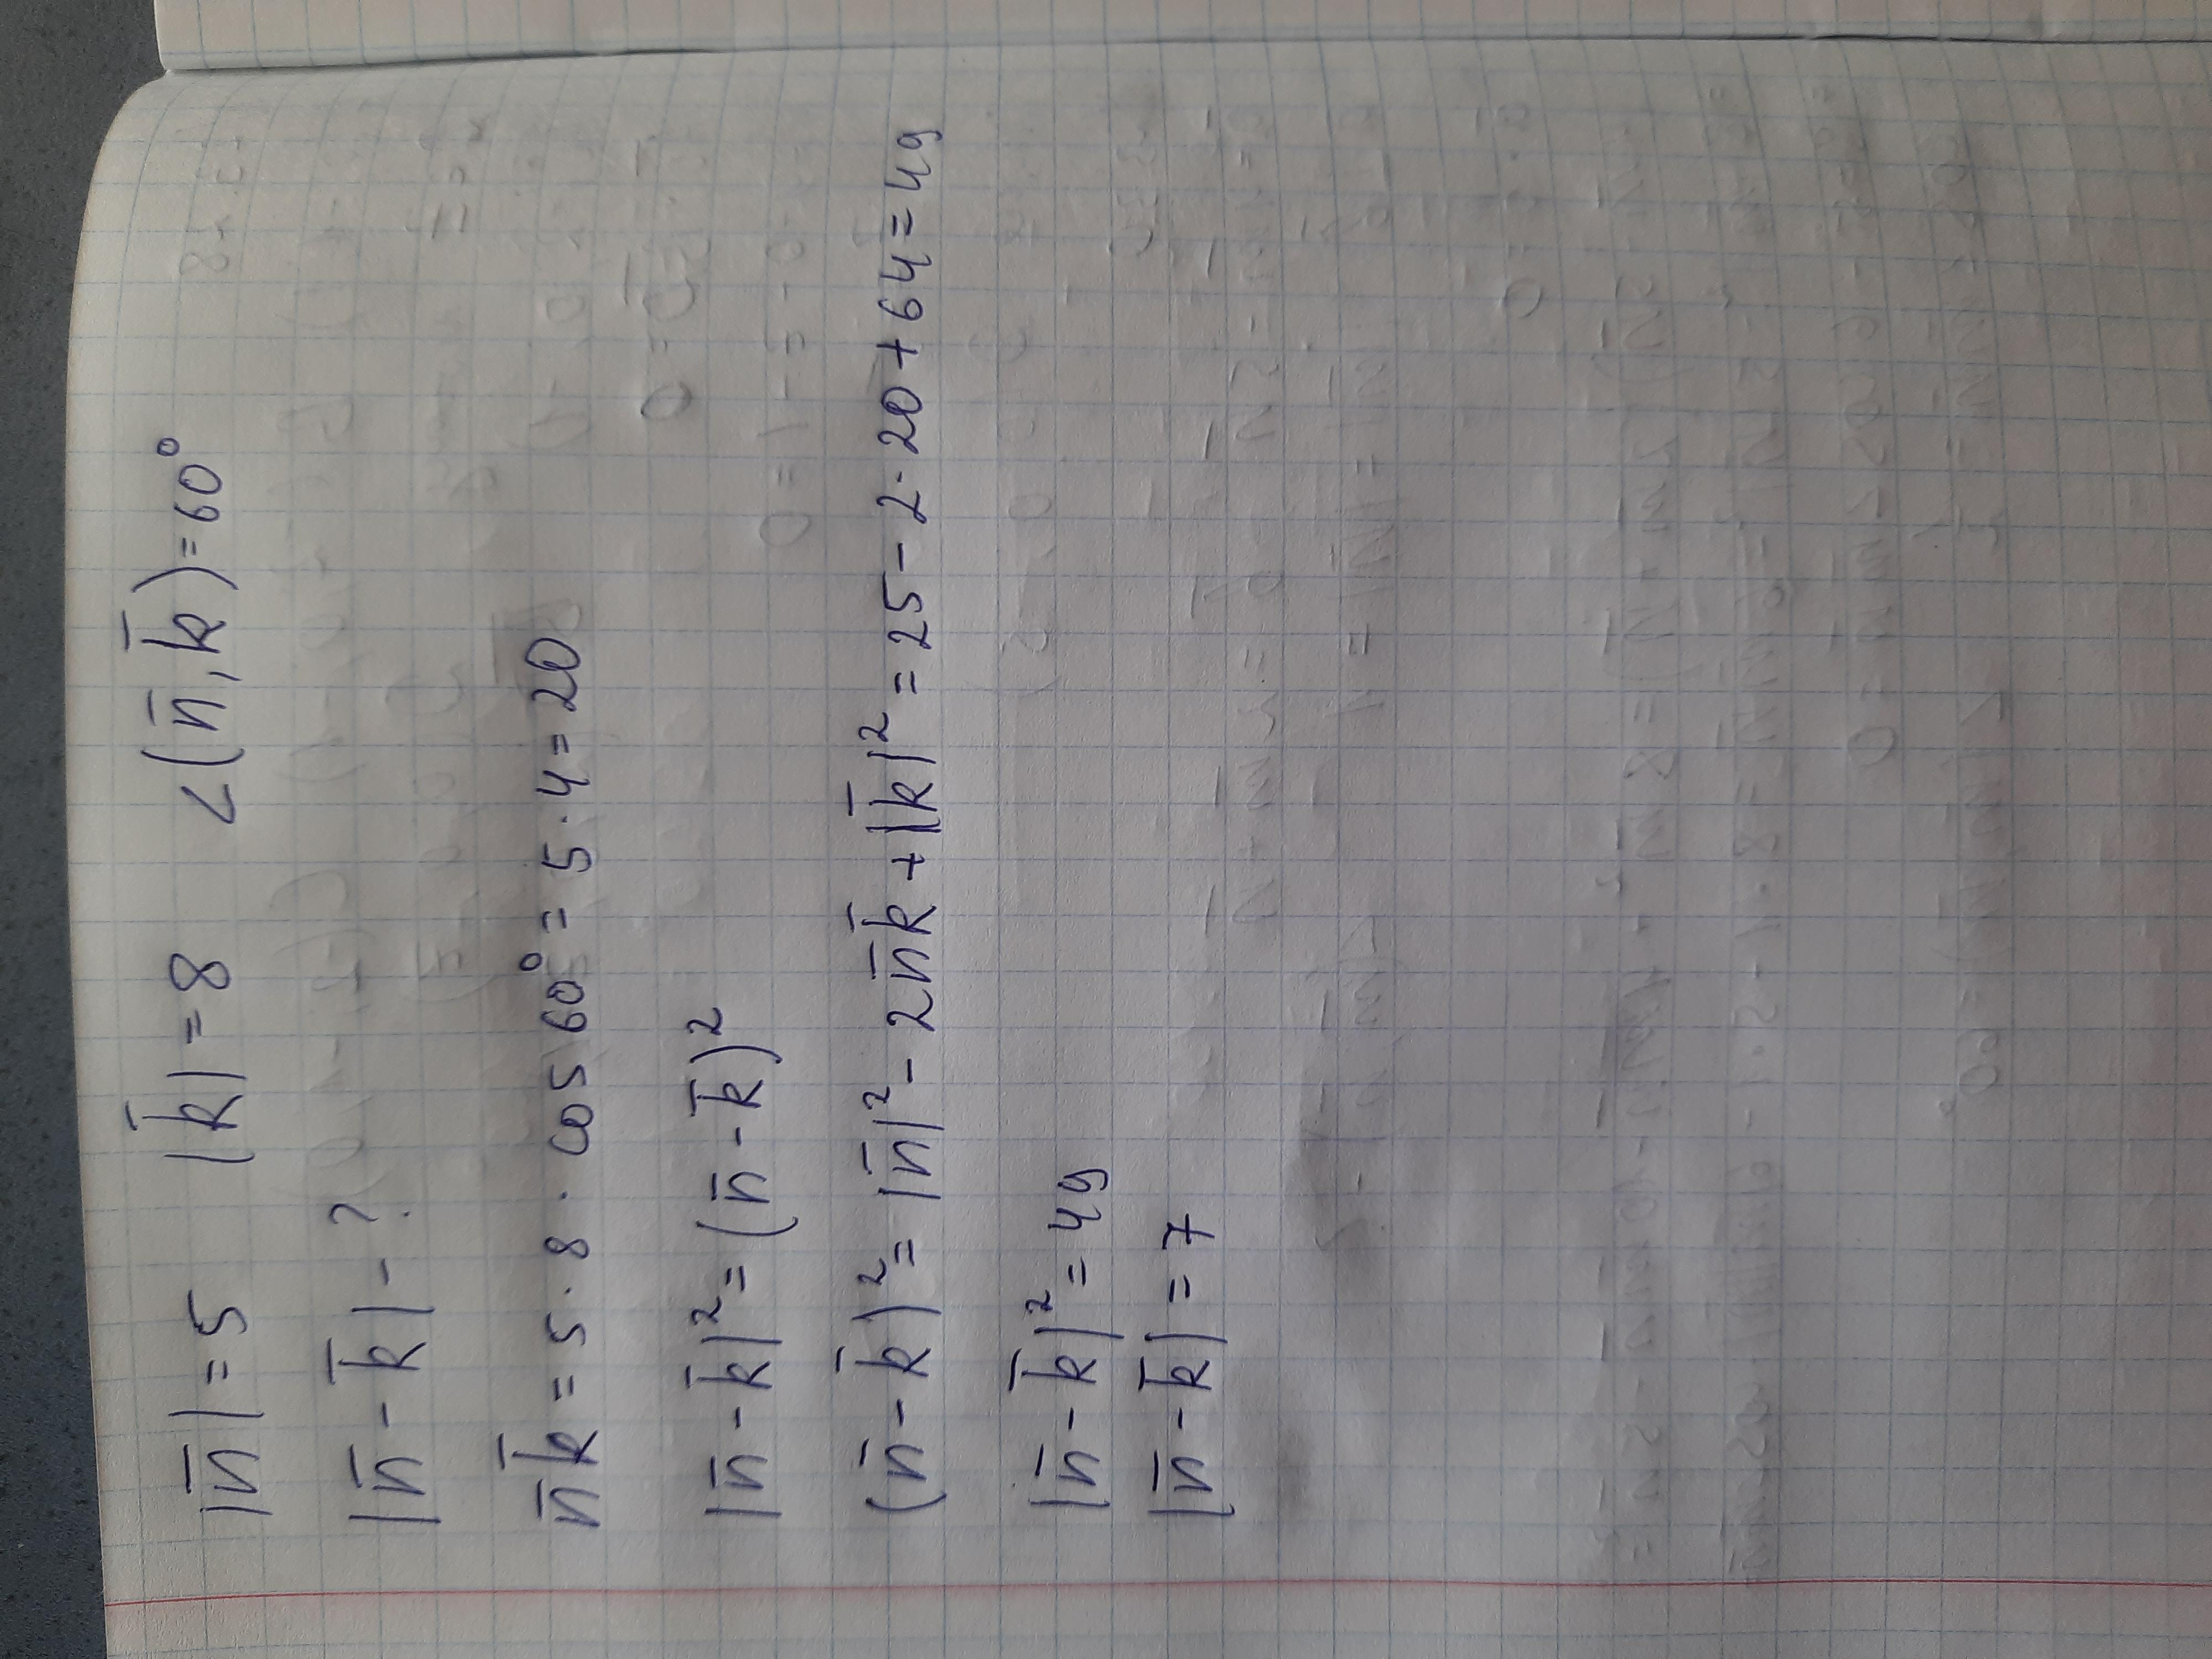 |n̅| = 5   |k̅| = 8   ∠(n̅, k̅) = 60°
|n̅ - k̅| - ?
n̅k̅ = 5 · 8 · cos 60° = 5 · 4 = 20
|n̅ - k̅|² = (n̅ - k̅)²
(n̅ - k̅)² = |n̅|² - 2n̅k̅ + |k̅|² = 25 - 2 · 20 + 64 = 49
|n̅ - k̅|² = 49
|n̅ - k̅| = 7